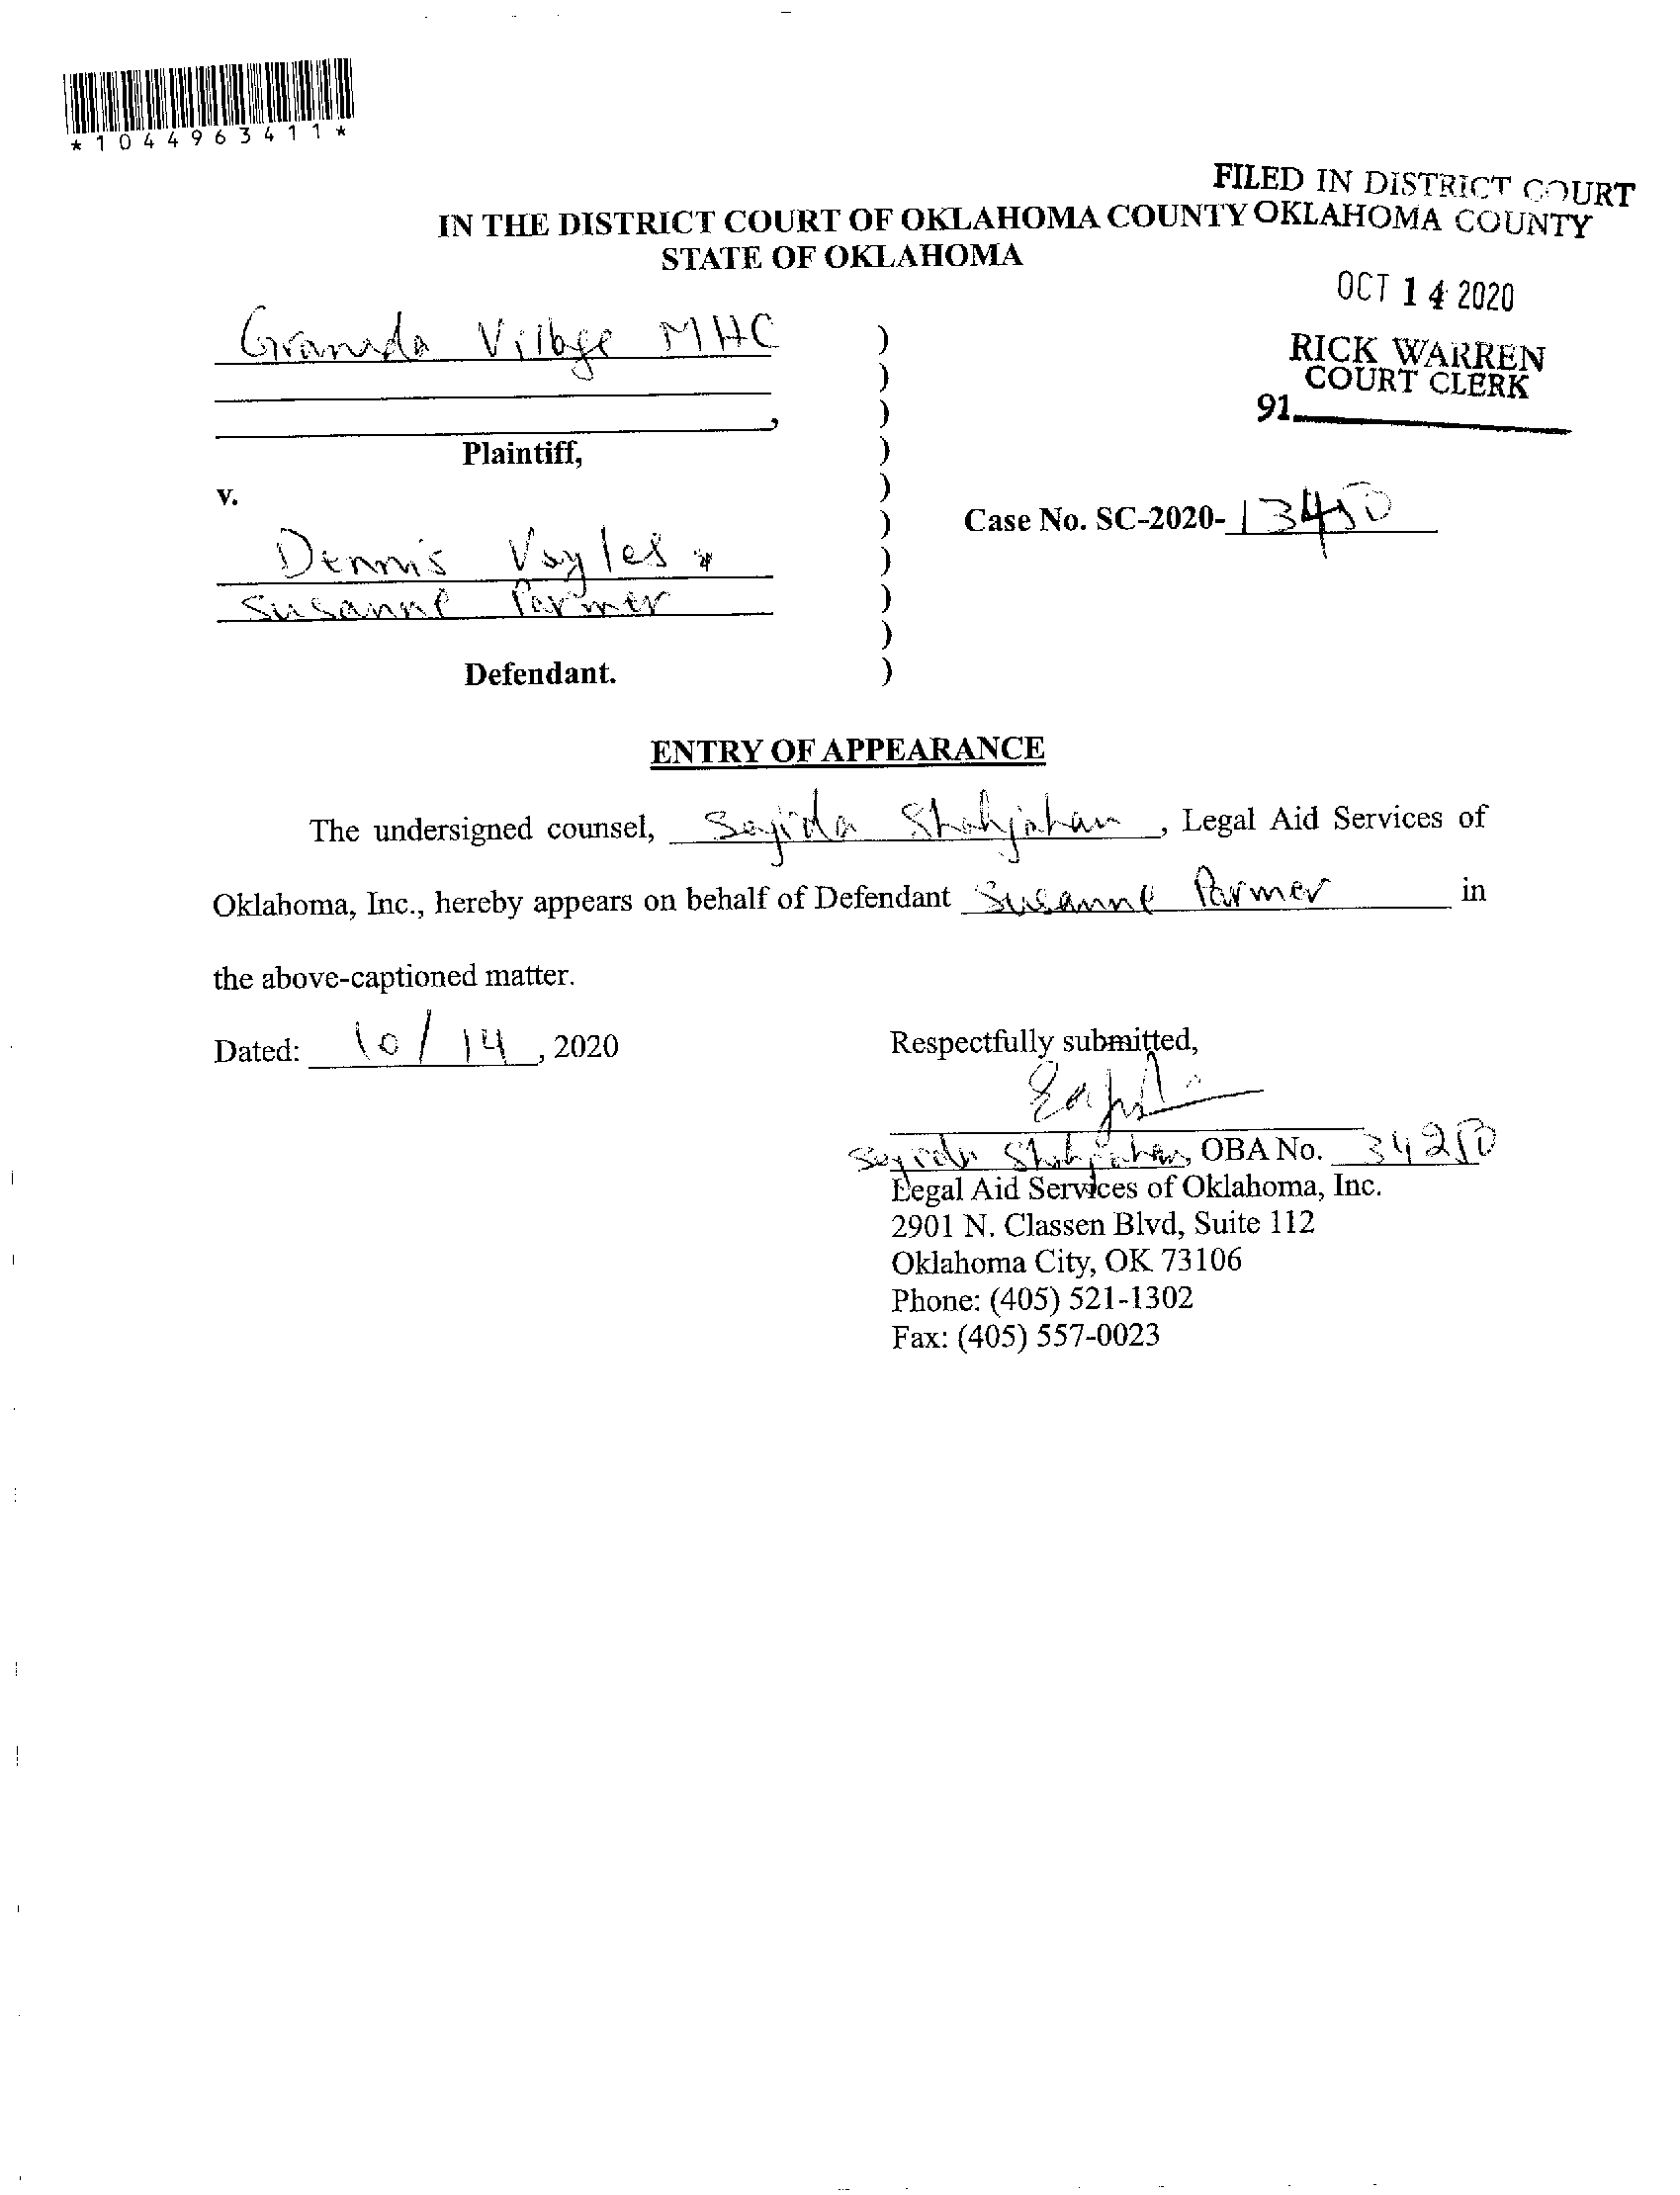 *1044963411*
FILED IN DISTRICT COURT
OKLAHOMA COUNTY
IN THE DISTRICT COURT OF OKLAHOMA COUNTY
STATE OF OKLAHOMA
OCT 14 2020
RICK WARREN
COURT CLERK
91
Granada Village MHC )
)
, )
Plaintiff, )
v. )
Case No. SC-2020-13450 )
Dennis Voyles & )
Susanne Parmer )
)
Defendant. )
ENTRY OF APPEARANCE
The undersigned counsel, Sajida Shahjahan, Legal Aid Services of
Oklahoma, Inc., hereby appears on behalf of Defendant Susanne Parmer in
the above-captioned matter.
Dated: 10/14, 2020
Respectfully submitted,
Sajida Shahjahan, OBA No. 34250
Legal Aid Services of Oklahoma, Inc.
2901 N. Classen Blvd, Suite 112
Oklahoma City, OK 73106
Phone: (405) 521-1302
Fax: (405) 557-0023